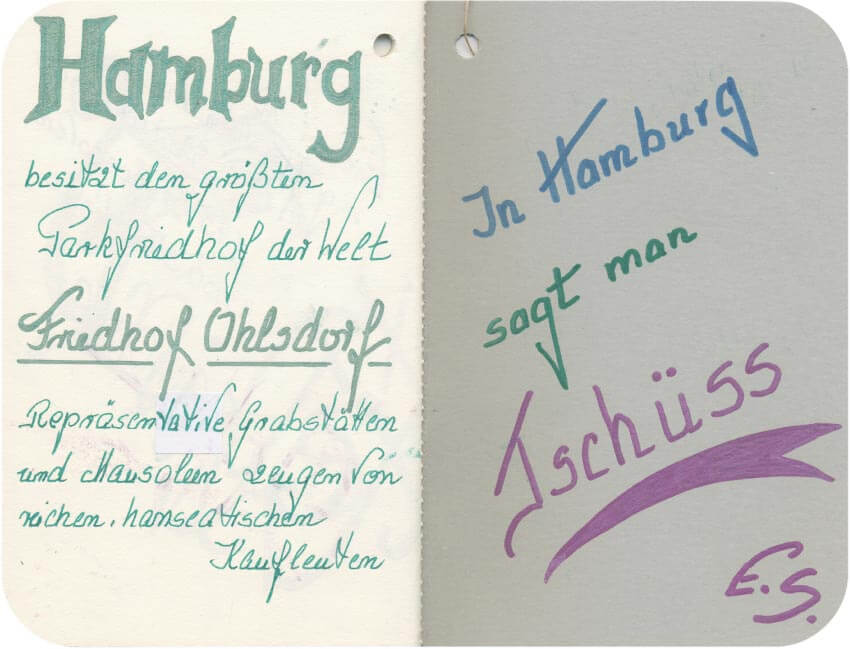 Hamburg
besitzt den größten
Parkfriedhof der Welt
Friedhof Ohlsdorf
Repräsentative Grabstätten
und Mausoleen zeugen von
reichen, hanseatischen
Kaufleuten
In Hamburg
sagt man
Tschüss
E.S.